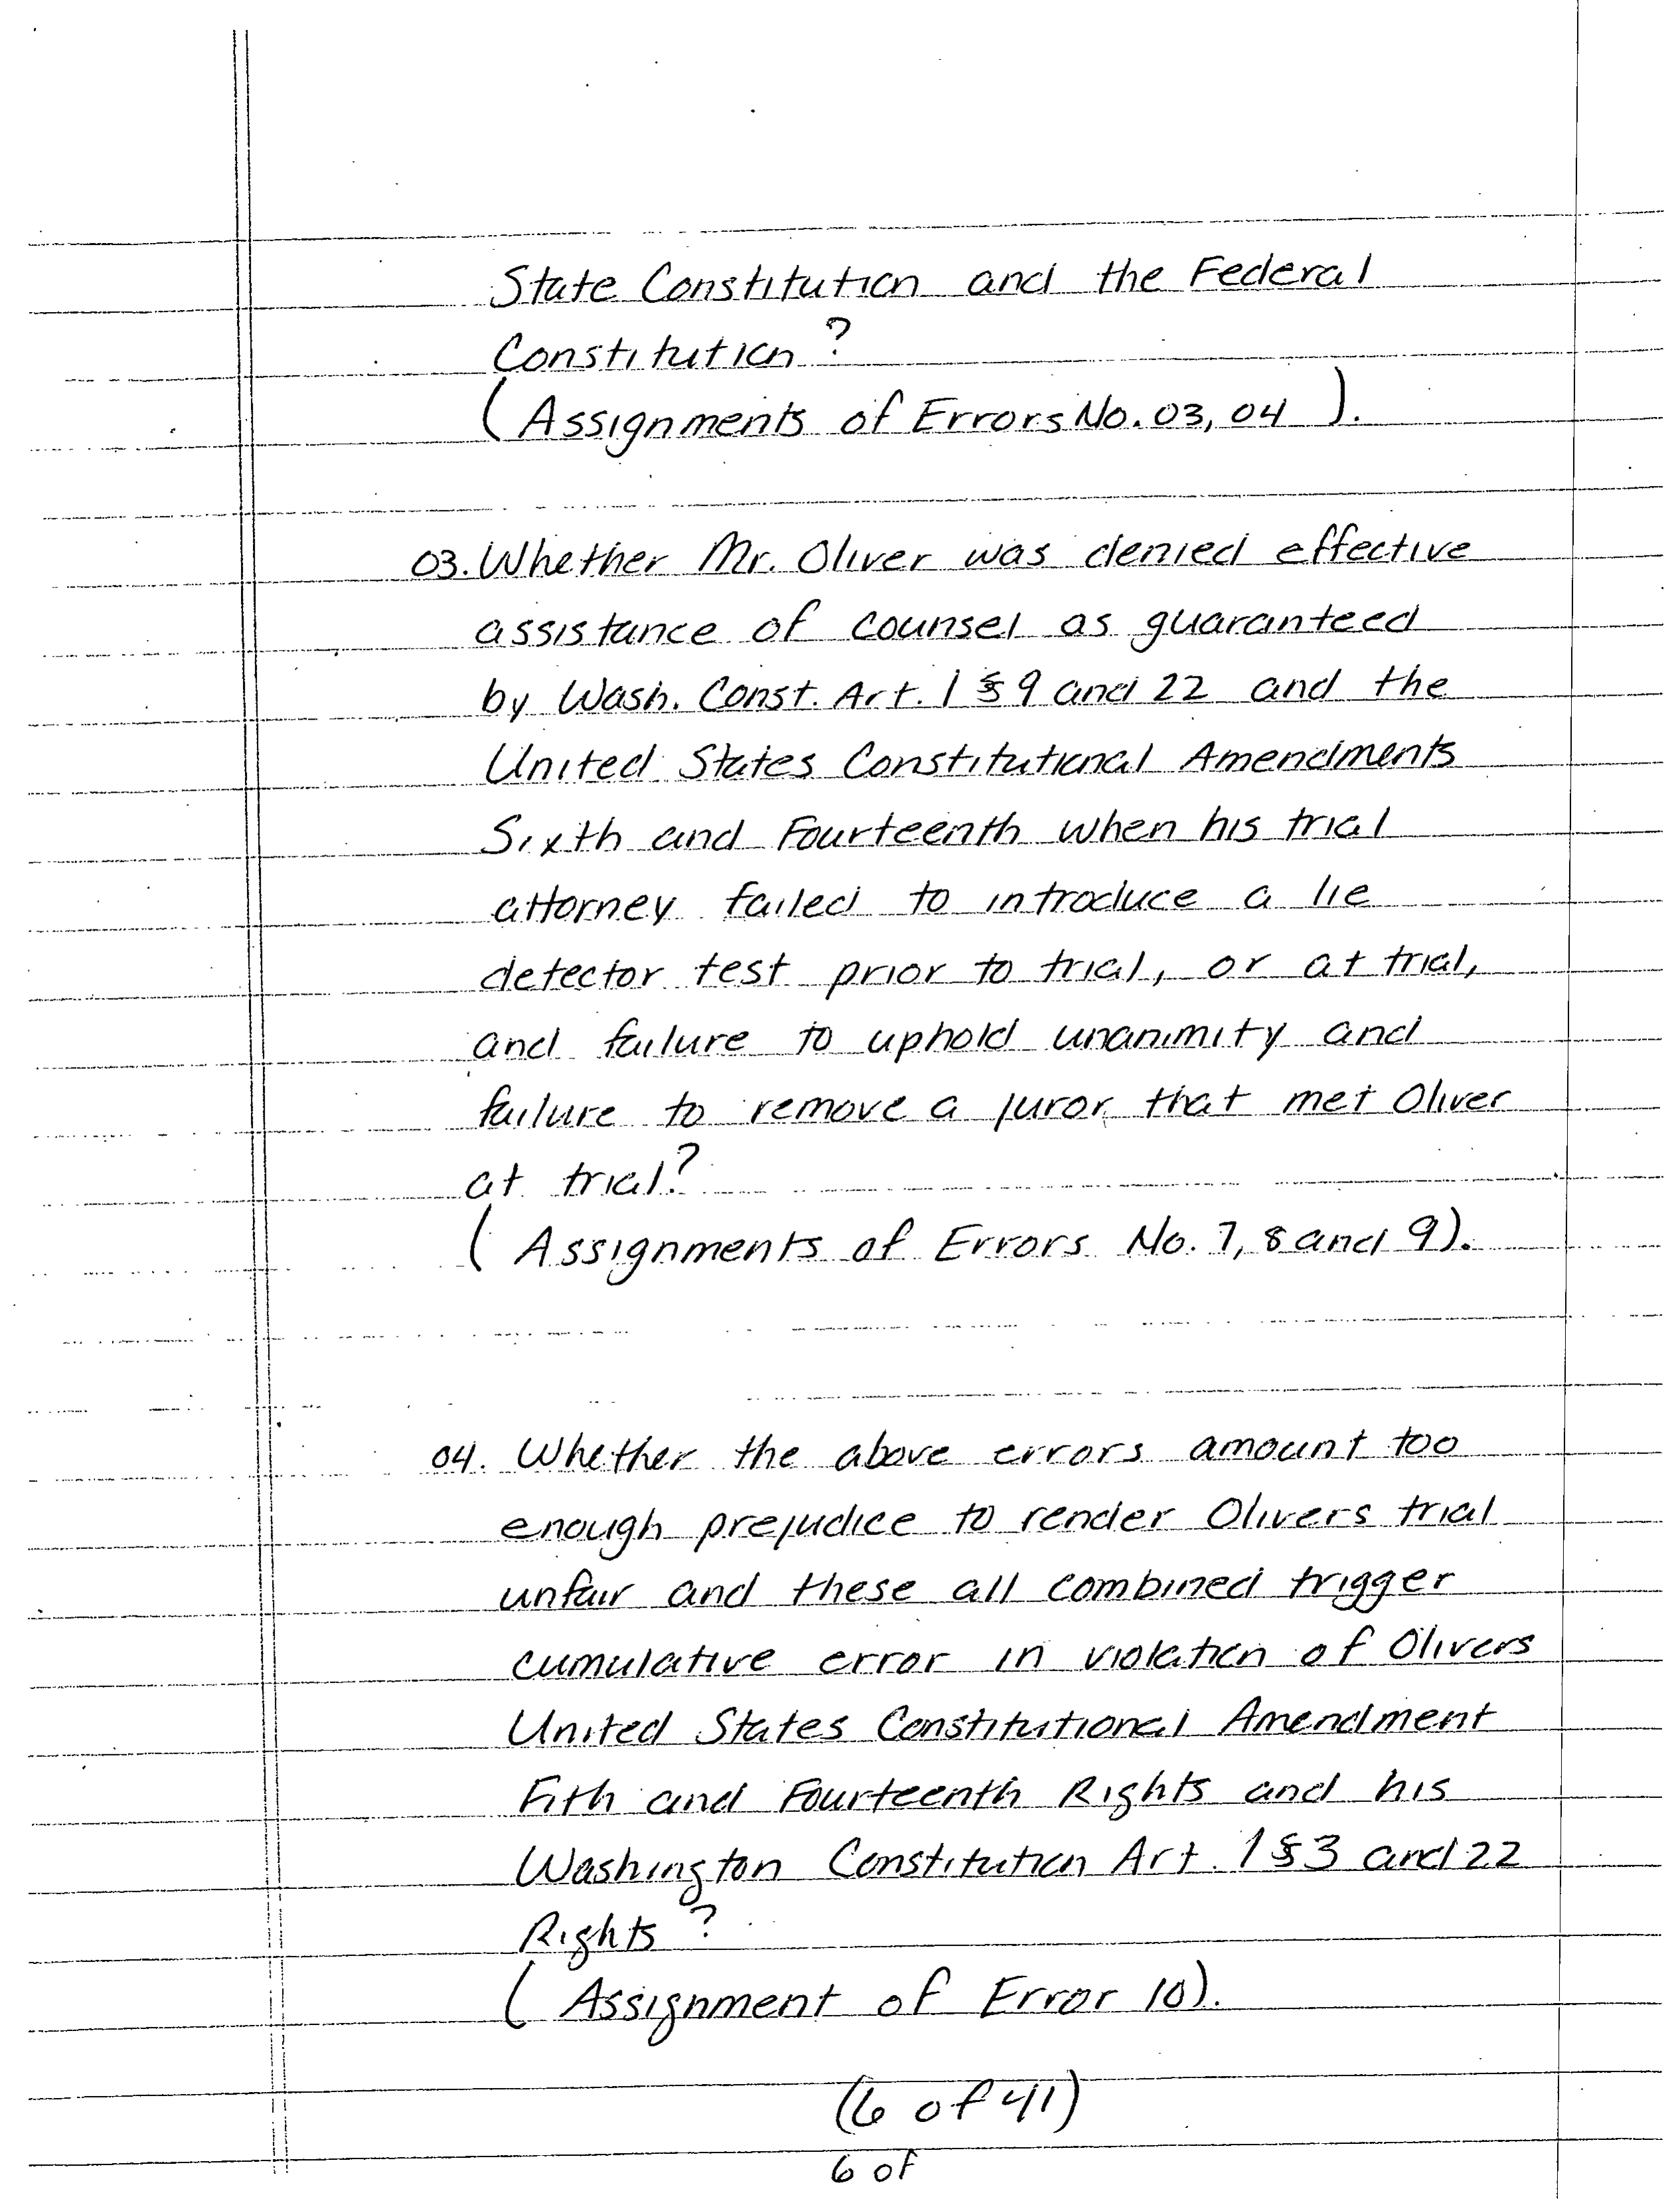 State Constitution and the Federal
Constitution?
(Assignments of Errors No. 03, 04 ).
03. Whether Mr. Oliver was denied effective
assistance of counsel as guaranteed
by Wash. Const. Art. 1 § 9 and 22 and the
United States Constitutional Amendments
Sixth and Fourteenth when his trial
attorney failed to introduce a lie
detector test prior to trial, or at trial,
and failure to uphold unanimity and
failure to remove a juror that met Oliver
at trial?
(Assignments of Errors No. 7, 8 and 9).
04. Whether the above errors amount too
enough prejudice to render Olivers trial
unfair and these all combined trigger
cumulative error in violation of Olivers
United States Constitutional Amendment
Fith and Fourteenth Rights and his
Washington Constitution Art. 1 § 3 and 22
Rights?
(Assignment of Error 10).
(6 of 41)
6 of